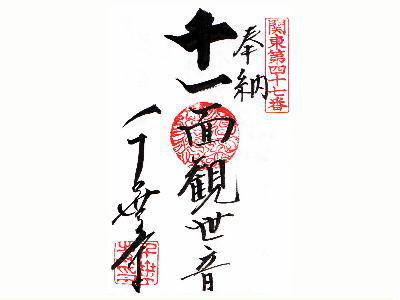 関東第四十七番
奉納
十一面観世音
千葉寺